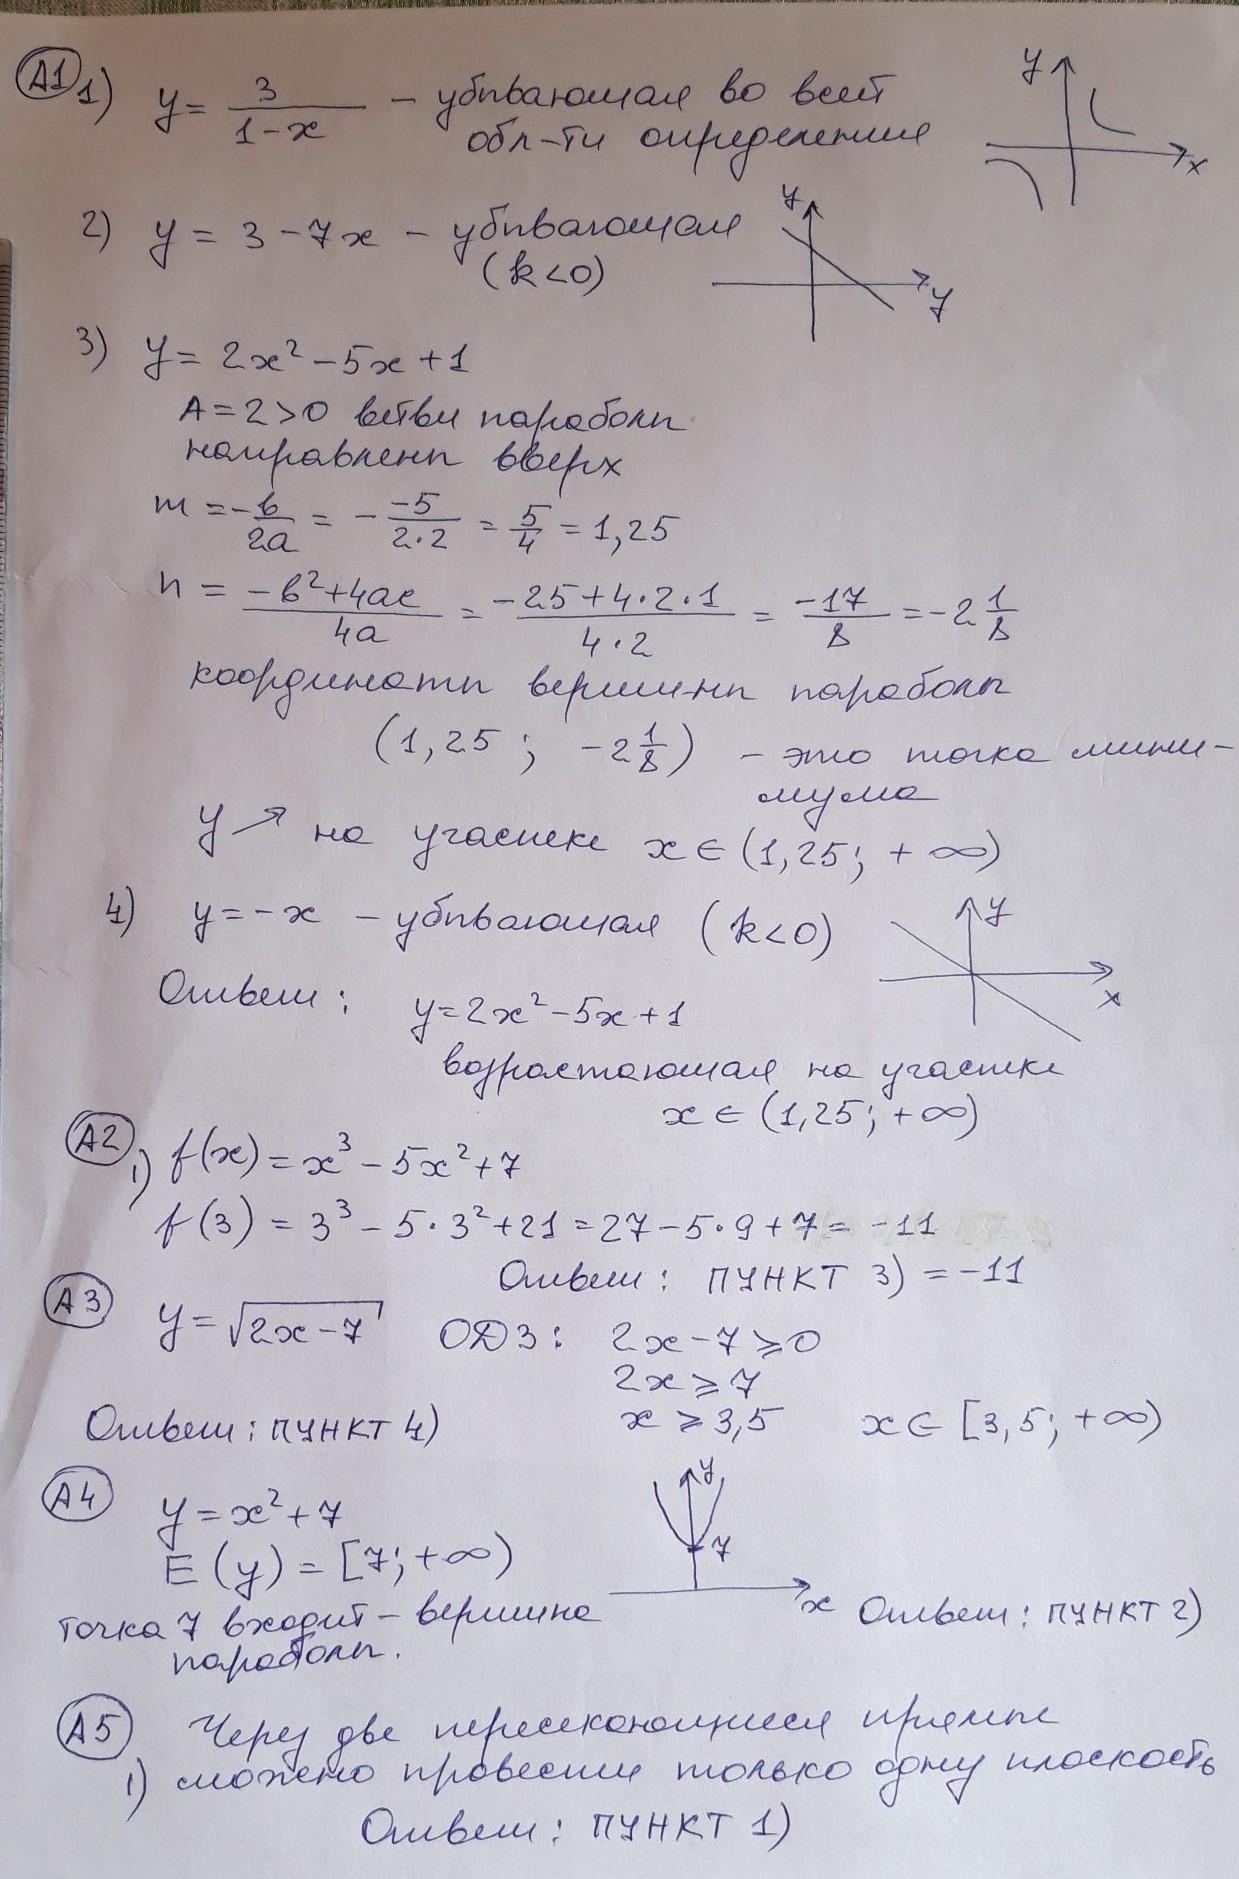 А1 1) y = 3/(1-x) – убывающая во всей y
обл-ти определения x
2) y = 3 - 7x – убывающая y
(k<0) y
3) y = 2x² - 5x + 1
A = 2 > 0 ветви параболы
направлены вверх
m = -b/2a = - -5/2·2 = 5/4 = 1,25
n = -b²+4ac/4a = -25+4·2·1/4·2 = -17/8 = -2 1/8
координаты вершины параболы
(1,25; -2 1/8) – это точка мини-
мума
y ↗ на участке x ∈ (1,25; +∞)
4) y = -x – убывающая (k<0) y
x
Ответ: y = 2x² - 5x + 1
возрастающая на участке
x ∈ (1,25; +∞)
А2 1) f(x) = x³ - 5x² + 7
f(3) = 3³ - 5·3² + 21 = 27 - 5·9 + 7 = -11
Ответ: ПУНКТ 3) = -11
А3 y = √2x-7 ОДЗ: 2x - 7 ⩾ 0
2x ⩾ 7
Ответ: ПУНКТ 4) x ⩾ 3,5 x ∈ [3,5; +∞)
А4 y = x² + 7 y
E(y) = [7; +∞) 7
точка 7 входит – вершина x Ответ: ПУНКТ 2)
параболы.
А5 Через две пересекающиеся прямые
1) можно провести только одну плоскость
Ответ: ПУНКТ 1)